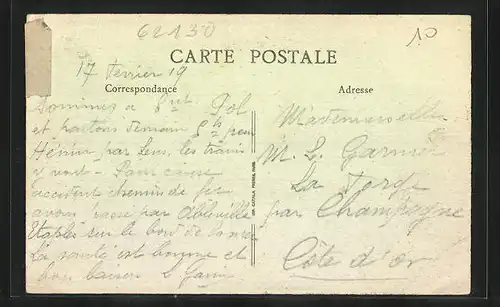 62130
10
CARTE POSTALE
17 fevrier 19
Correspondance
Adresse
Sommes a St Pol
et partons demain 8h pour
Hénin par Lens, les trains
y vont - Pour cause
accident chemin de fer
avons passé par Abbeville
Etaples sur le bord de la mer
La santé est bonne et
bon baiser
Mademoiselle
M. L. Garnier
La Forge
par Champagne
Côte d'or